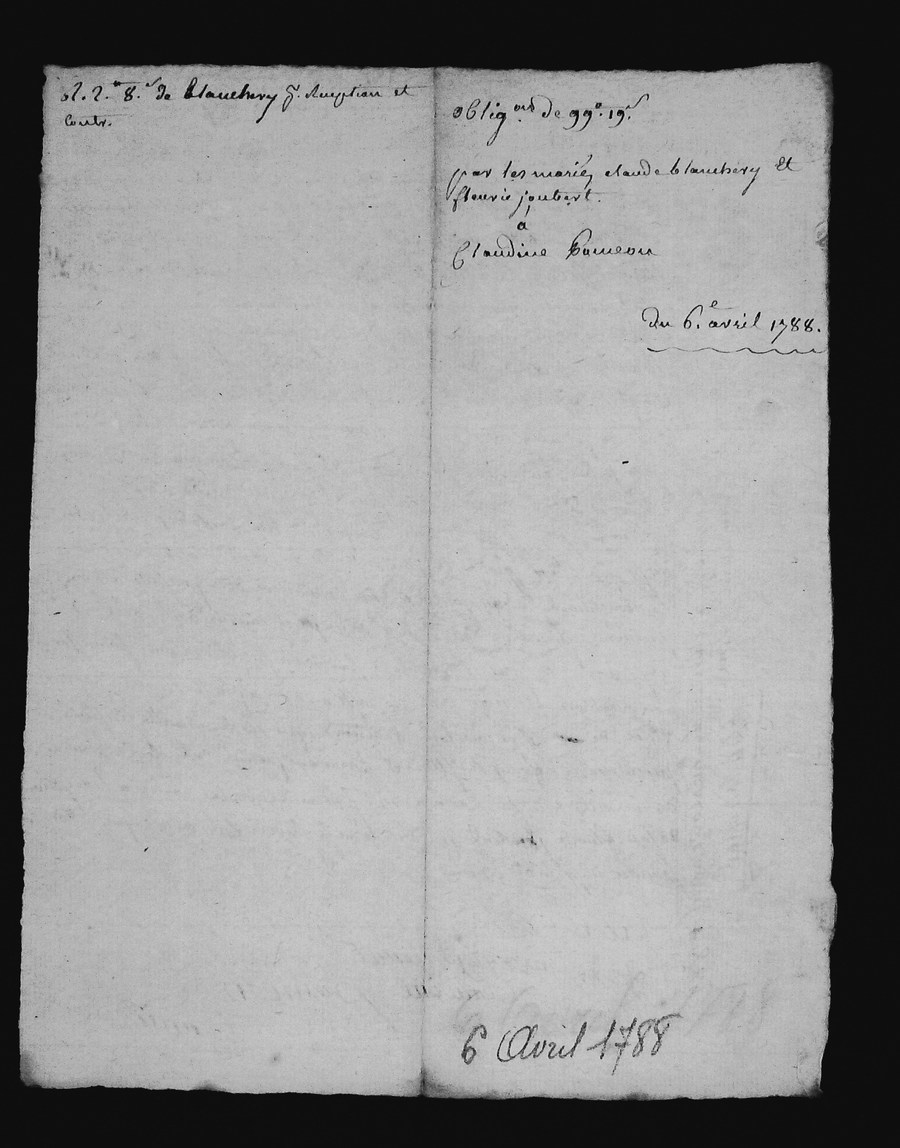 R. 2.# 8.s de blanchery p.r Reception et
Contr.
oblig.on de 99.# 19.s
par les mariés claude blanchery Et
fleurie joubert.
à
Claudine
du 6.e avril 1788.
6 Avril 1788